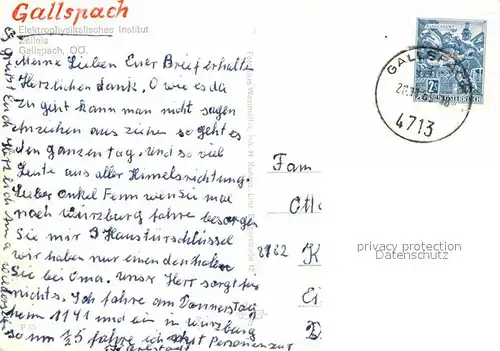 Gallspach
Elektrophysikalisches Institut
Zeileis
Gallspach, OÖ.
Meine Lieben Euer Brief erhalten
Herzlichen dank, O wie es da
zu geht kann man nicht sagen
anziehen aus ziehen so geht es
den ganzen tag, und so viel
Leute aus aller Himelsrichtung.
Lieber onkel Fenn wen Sie mal
nach Würzburg fahre besorgen
Sie mir 3 Haustürschlüssel
wir haben nur einen den holen
Sie bei Oma. unser Herr sorgt für
nichts. Ich fahre am Donnerstag
hier 11 41 und ein in würzburg
so um 25 fahre ich erst Personenzug
Es grüßt Euch Herzlich
GALLSPACH
4713
2 S
REPUBLIK ÖSTERREICH
Fam
Otto
8782 K
Ei
D
privacy protection
Datenschutz
P 35